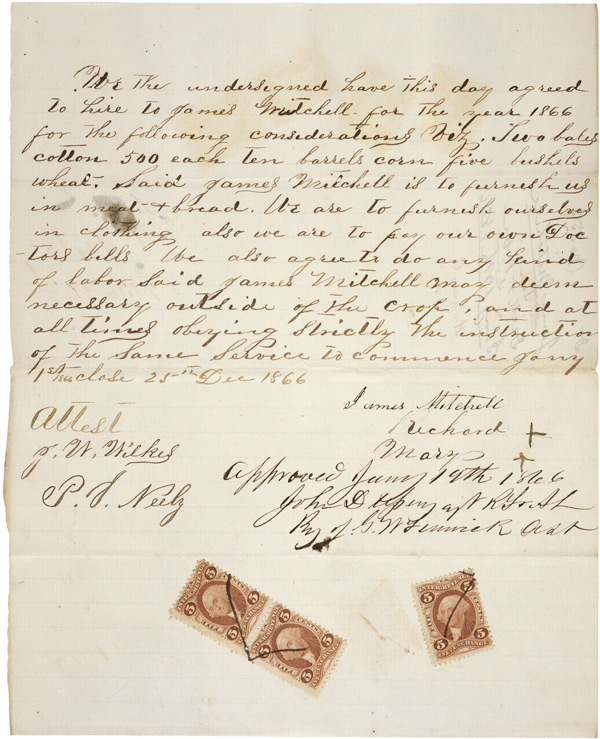 We the undersigned have this day agreed
to hire to James Mitchell for the year 1866
for the following considerations Viz. Two bales
cotton 500 each ten barrels corn five bushels
wheat. Said James Mitchell is to furnish us
in meat + bread. We are to furnish ourselves
in clothing also we are to pay our own Doc
tors bills We also agree to do any kind
of labor Said James Mitchell may deem
necessary outside of the crop, and at
all times obeying strictly the instruction
of the Same Service to commence Jany
1st close 25th Dec 1866
Attest
J. W. Wilkes
P. J. Neely
James Mitchell
Richard +
Mary +
Approved Jany 19th 1866
John D
By G. W. Fenwick
5 5 5 5
INTER. EXCHANGE
5 5 5 5
INTER. EXCHANGE
5 5
5 5
INTER. EXCHANGE